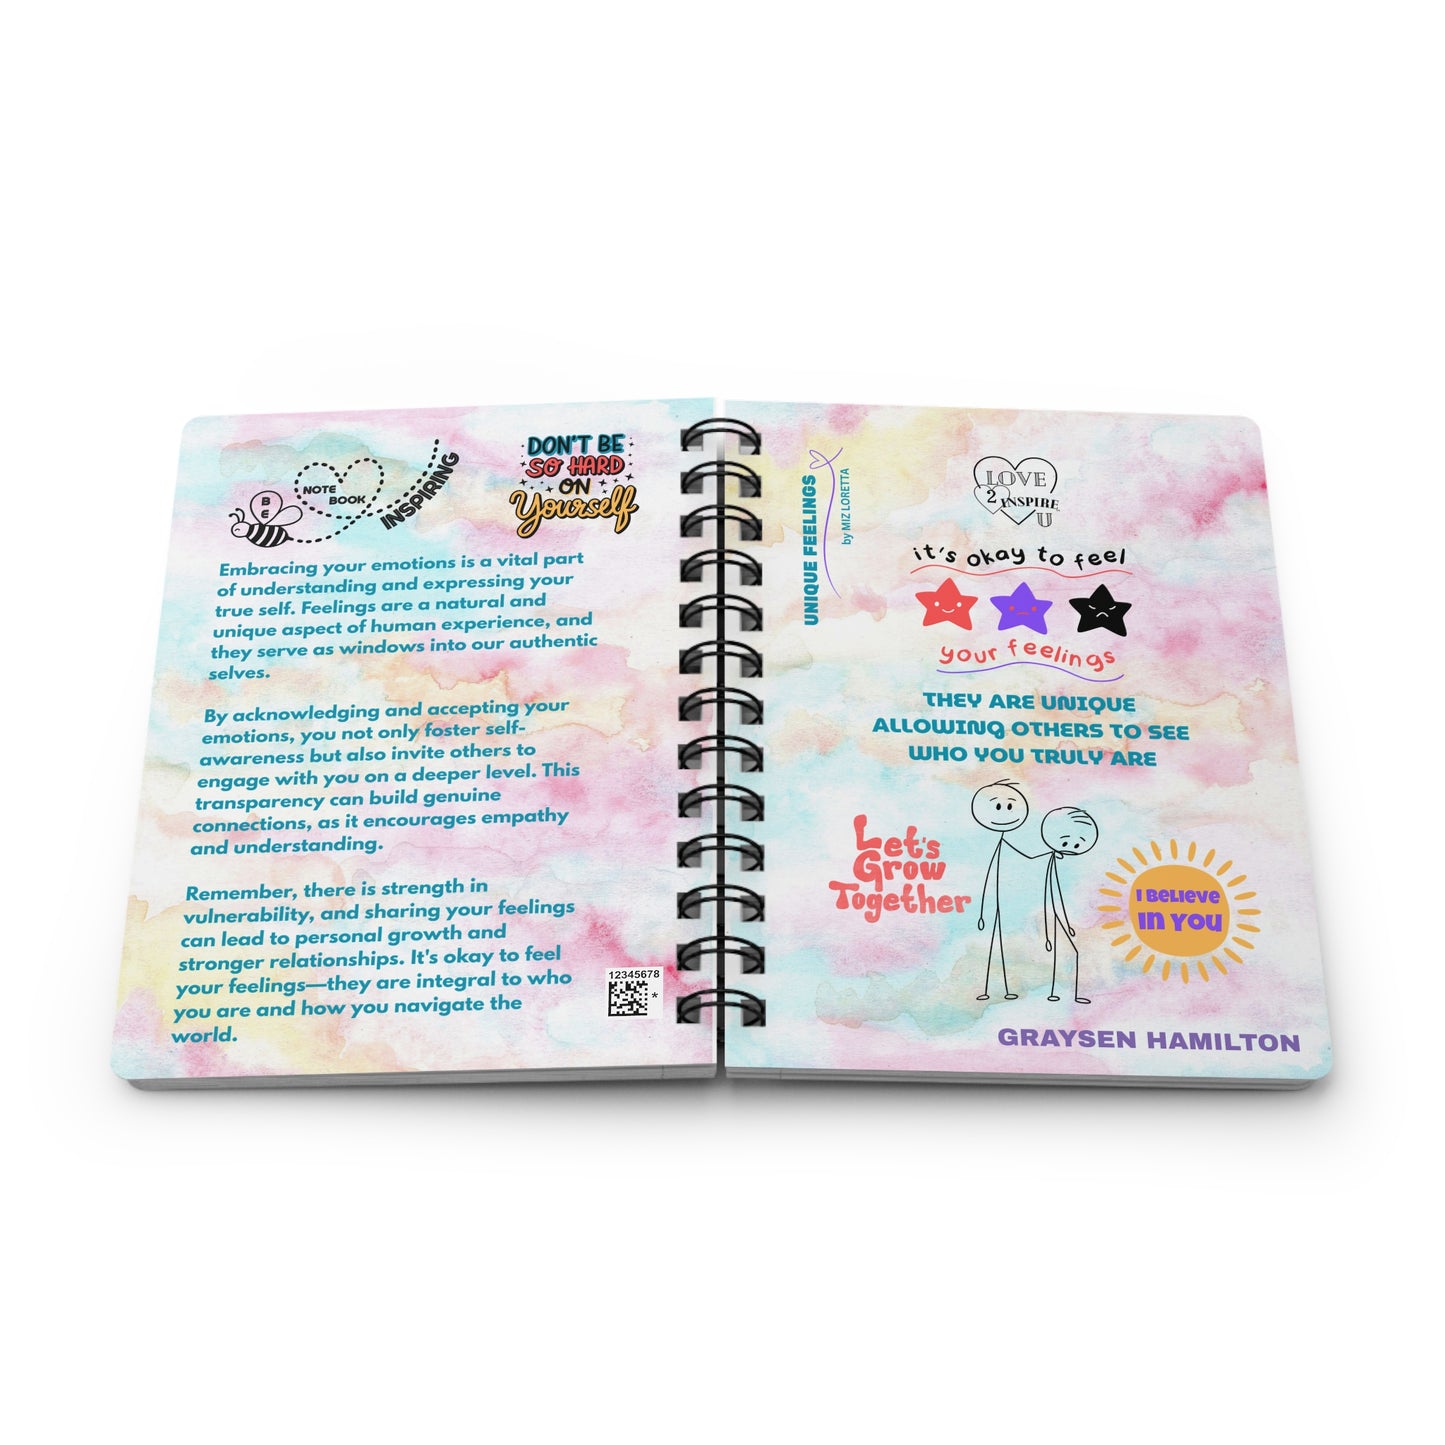 BE
NOTE
BOOK
INSPIRING
DON'T BE
SO HARD
ON
Yourself
Embracing your emotions is a vital part
of understanding and expressing your
true self. Feelings are a natural and
unique aspect of human experience, and
they serve as windows into our authentic
selves.
By acknowledging and accepting your
emotions, you not only foster self-
awareness but also invite others to
engage with you on a deeper level. This
transparency can build genuine
connections, as it encourages empathy
and understanding.
Remember, there is strength in
vulnerability, and sharing your feelings
can lead to personal growth and
stronger relationships. It's okay to feel
your feelings—they are integral to who
you are and how you navigate the
world.
12345678
*
UNIQUE FEELINGS
by MIZ LORETTA
LOVE
2 INSPIRE
U
it's okay to feel
your feelings
THEY ARE UNIQUE
ALLOWING OTHERS TO SEE
WHO YOU TRULY ARE
Let's
Grow
Together
I BELIEVE
IN YOU
GRAYSEN HAMILTON